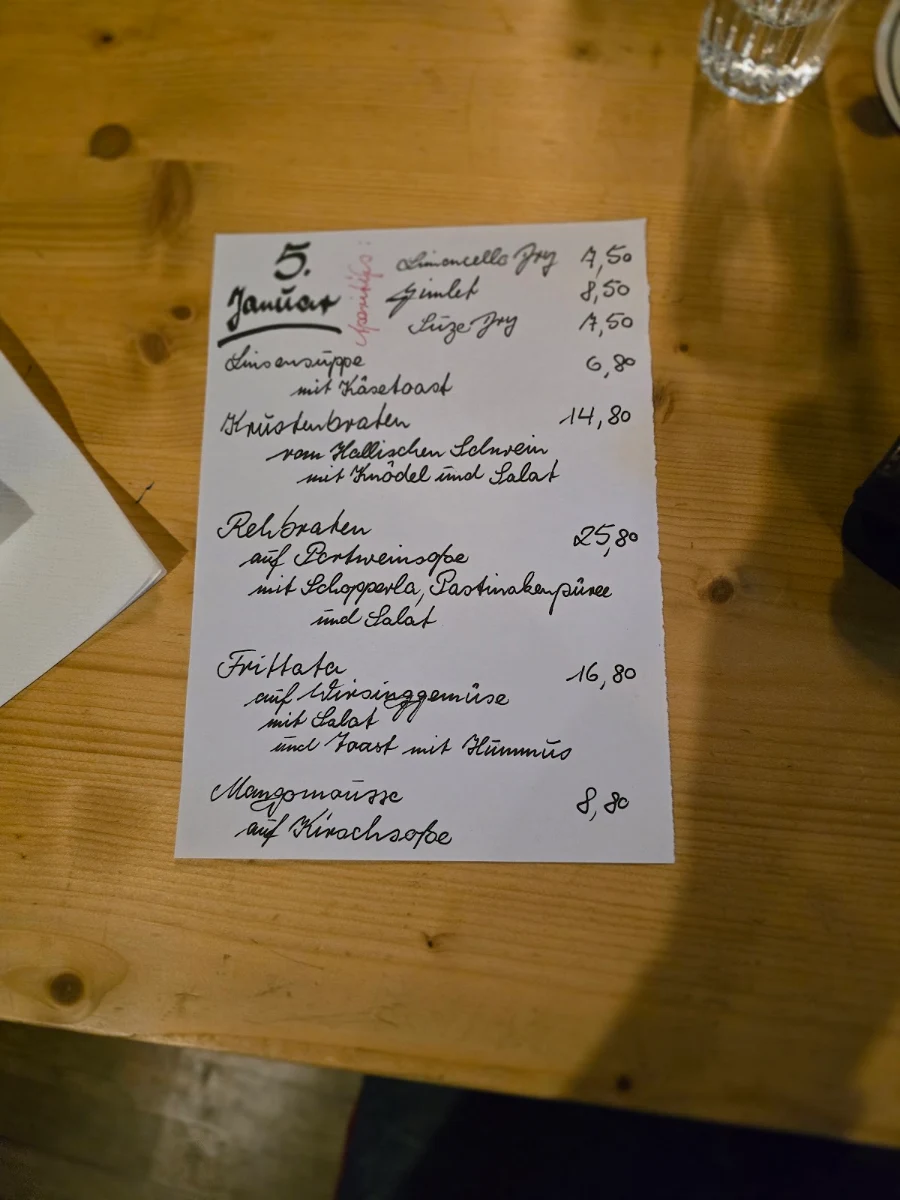 5.
Januar
Aperitifs:
Limoncello Dry 7,50
Gimlet 8,50
Suze Dry 7,50
Linsensuppe 6,80
mit Käsetoast
Krustenbraten 14,80
vom Hallischen Schwein
mit Knödel und Salat
Rehbraten 25,80
auf Portweinsoße
mit Schopperla, Pastinakenpüree
und Salat
Frittata 16,80
auf Wirsinggemüse
mit Salat
und Toast mit Hummus
Mangomousse 8,80
auf Kirschsoße